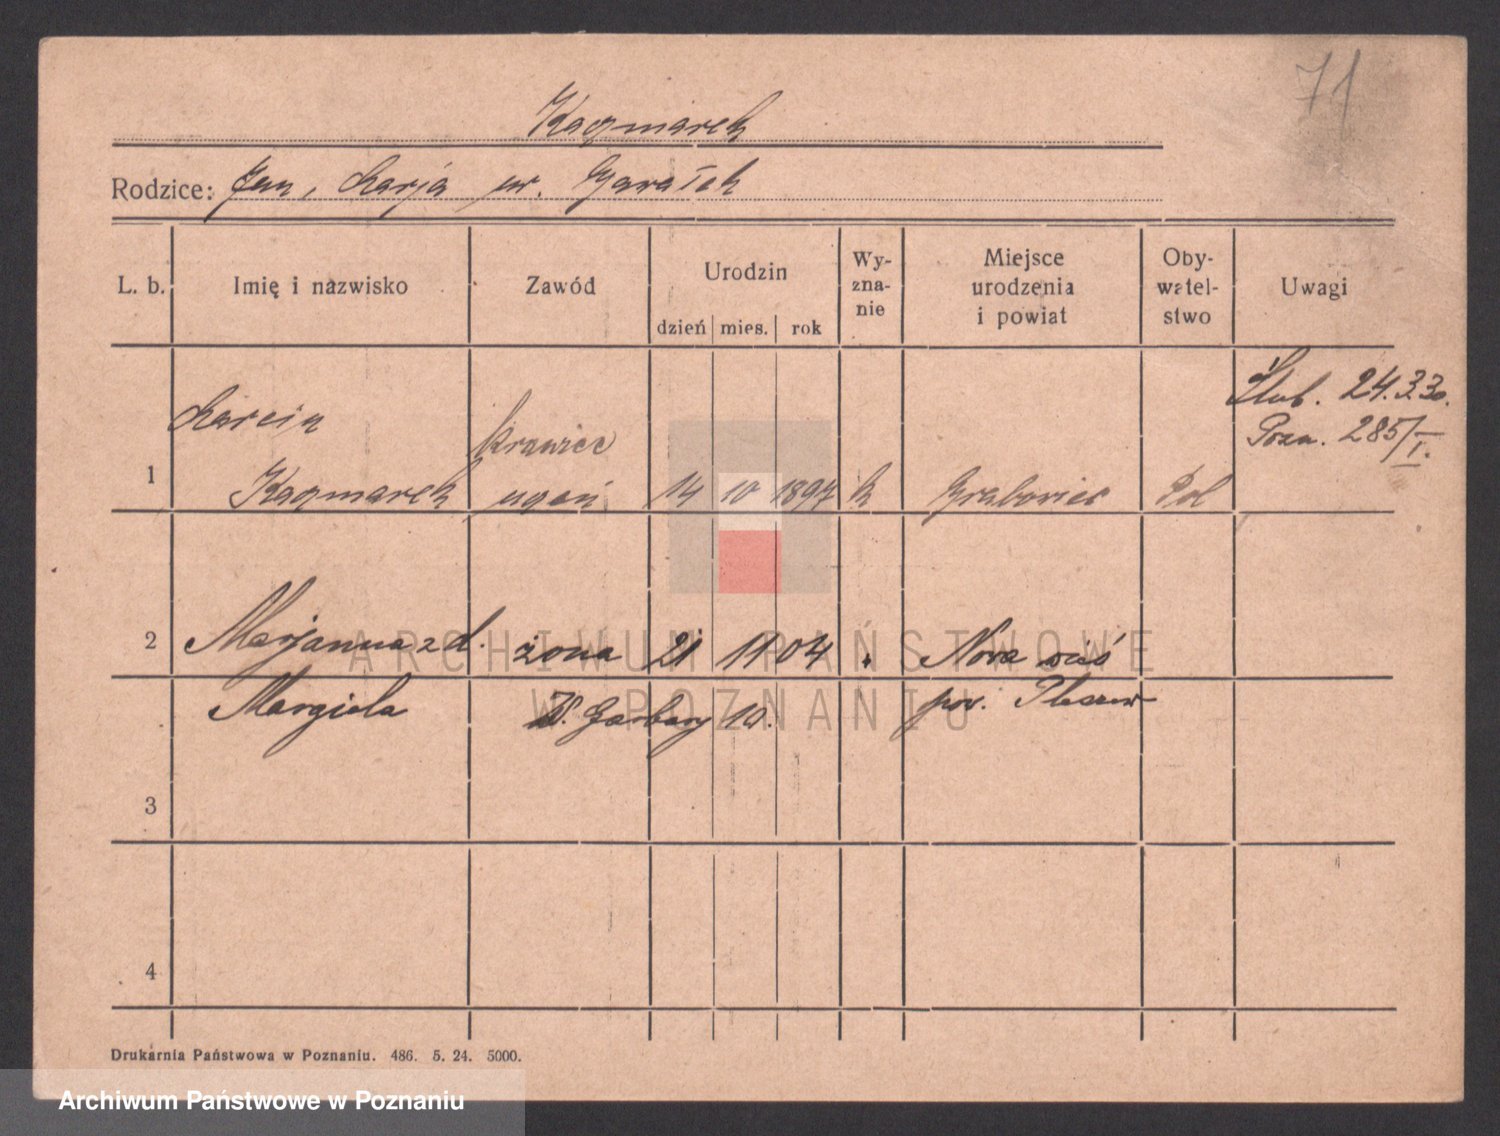 71
Kaczmarek
Rodzice: Jan, Marja ur.
L. b. Imię i nazwisko Zawód Urodzin dzień mies. rok Wy-zna-nie Miejsce urodzenia i powiat Oby-watel-stwo Uwagi
Ślub. 24.3.30.
Pozn. 285/I.
Marcin krawiec
1 Kaczmarek uczeń 14 10 1897 k Grabowiec Pol
2 Marjanna z d. żona 21 11 04 " Nowa wieś
Margiela W. Garbary 10. pow. Pleszew
3
4
Drukarnia Państwowa w Poznaniu. 486. 5. 24. 5000.
ARCHIWUM PAŃSTWOWE
W POZNANIU
Archiwum Państwowe w Poznaniu